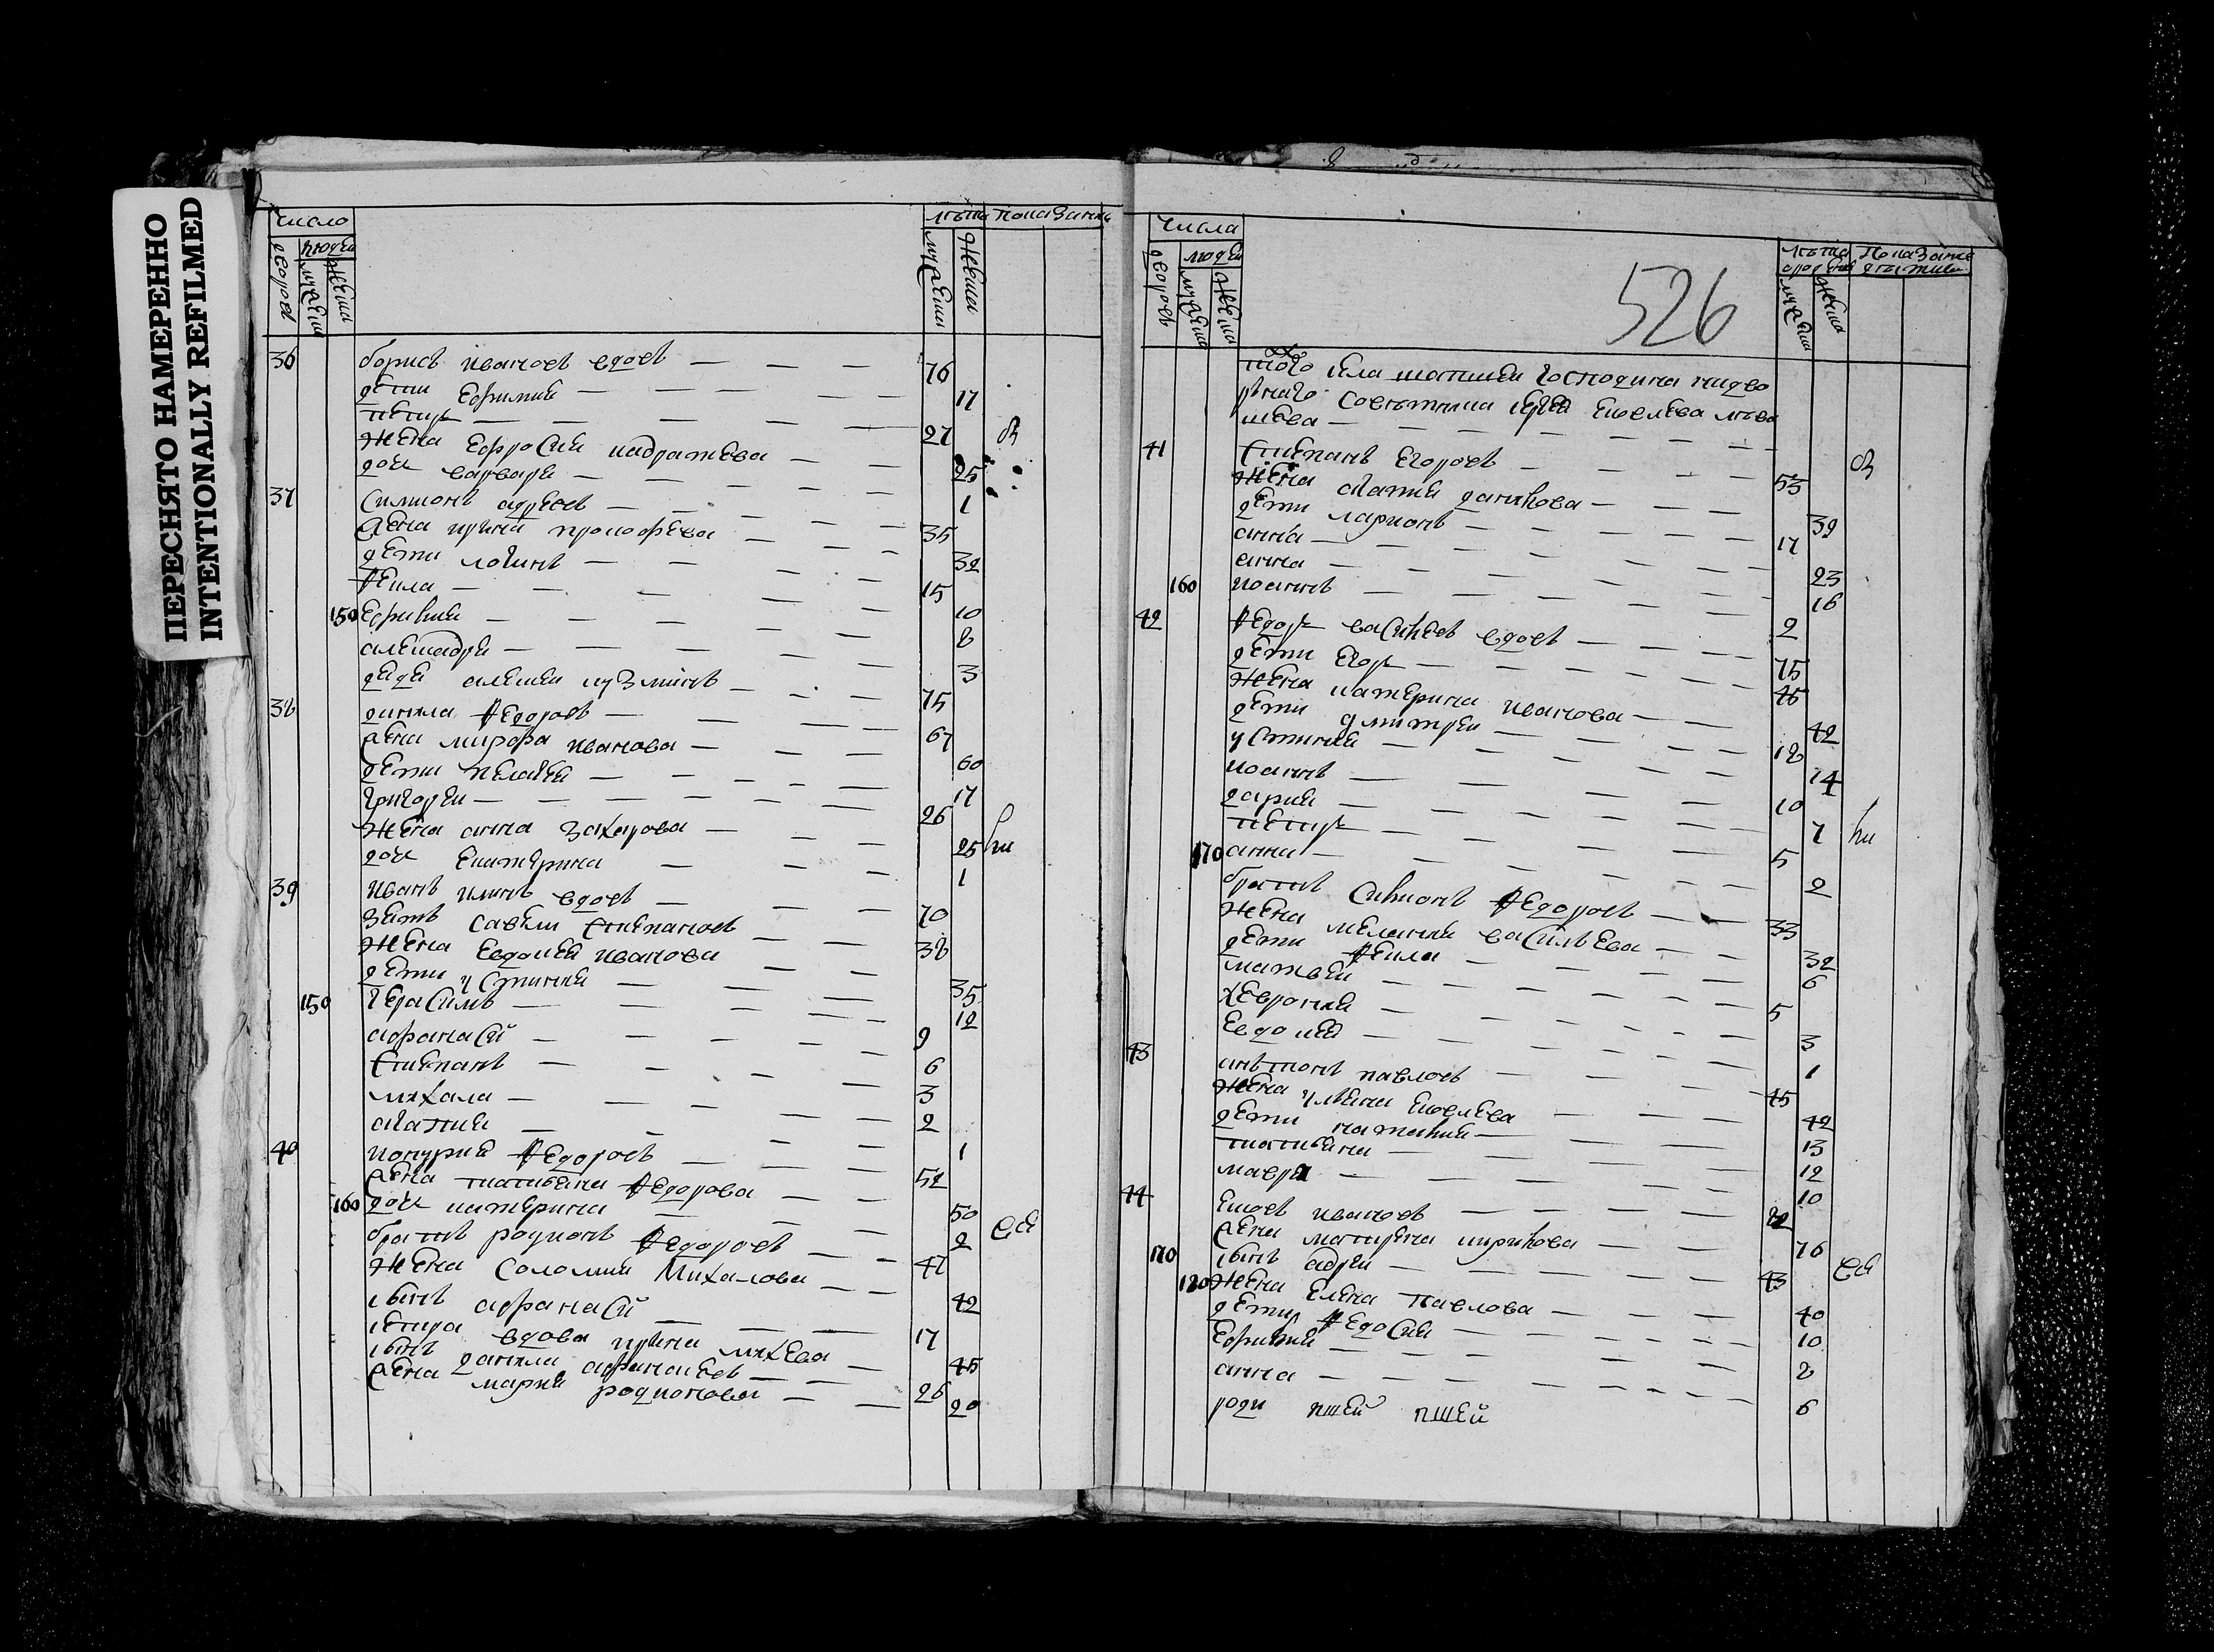 ПЕРЕСНЯТО НАМЕРЕННО
INTENTIONALLY REFILMED
число
людеи
лѣта показания
дворов
мужеска
женска
мужески
женски
36 борисъ ивановъ вдовъ 76
дети Ефимия 17
петръ 27
жена Ефросиня кадратева 25
дочь варвара 1
37 симионъ адреевъ 35
жена ирина прокофева 32
дети логинъ 15
фекла 10
150 Ефимия 8
алешадра 3
дядя алексеи кузминъ 75
38 данила Федоровъ 67
жена марфа иванова 60
дети пелагея 17
григореи 26
жена анна захарова 25
дочь Екатерина 1
39 иванъ илинъ вдовъ 70
зять савели степановъ 38
жена Евдокея иванова 35
дети устиния 12
150 герасимъ 9
афанаси 6
степанъ 3
михаила 2
агапия 1
40 Федоровъ 52
жена татияна Федорова 50
160 дочь катерина 2
братъ родионъ Федоровъ 47
жена соломия михалова 42
сынъ афанаси 17
вдова ирина михева 45
сынъ данила афанасевъ 26
жена мария родионова 20
числа
дворовъ
людеи
мужеска
женска
526
лѣта
показание
мужеска
женска
того села господина надво
рнаго советника
41 степанъ Егоровъ 53
жена агапия данилова 39
дети ларионъ 17
анна 23
анна 16
160 иоаннъ 2
42 Федоръ василевъ вдовъ 75
дети Егоръ 45
жена катерина иванова 42
дети дмитреи 18
устиния 14
иоаннъ 10
дария 7
петръ 5
170 анна 2
братъ Федоровъ 33
жена мелания василЬева 32
дети фекла 6
матвеи 5
хеврония 3
Евдокея 1
43 антонъ павловъ 45
жена улияна 42
дети наталия 13
татияна 12
мавра 10
44 ивановъ
жена матрена кирилова 76
170 сынъ адреи 43
180 жена Елена павлова 40
дети Федосия 10
Ефимия 8
анна 6